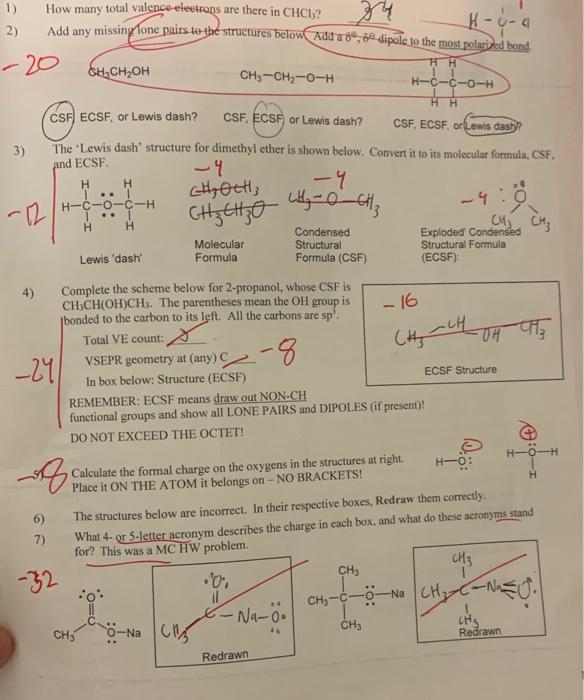 1) How many total valence electrons are there in CHCl₃?
H-C-Cl
2) Add any missing lone pairs to the structures below. Add a δ⊕, δ⊖ dipole to the most polarized bond.
-20
H H
CH₃CH₂OH CH₃-CH₂-O-H H-C-C-O-H
H H
CSF, ECSF, or Lewis dash? CSF, ECSF, or Lewis dash? CSF, ECSF, or Lewis dash?
3) The 'Lewis dash' structure for dimethyl ether is shown below. Convert it to its molecular formula, CSF,
and ECSF.
-4
-4
-4
H H
CH₃OCH₃
CH₃-O-CH₃
:Ö
-12
H-C-O-C-H
CH₃CH₃O
CH₃ CH₃
H H
Lewis 'dash'
Molecular
Formula
Condensed
Structural
Formula (CSF)
Exploded Condensed
Structural Formula
(ECSF):
4) Complete the scheme below for 2-propanol, whose CSF is
CH₃CH(OH)CH₃. The parentheses mean the OH group is
bonded to the carbon to its left. All the carbons are sp³.
-16
Total VE count:
CH₃-CH-OH-CH₃
VSEPR geometry at (any) C
-8
-24
In box below: Structure (ECSF)
ECSF Structure
REMEMBER: ECSF means draw out NON-CH
functional groups and show all LONE PAIRS and DIPOLES (if present)!
DO NOT EXCEED THE OCTET!
-8
Calculate the formal charge on the oxygens in the structures at right.
Place it ON THE ATOM it belongs on – NO BRACKETS!
⊖
H-Ö:
⊕
H-Ö-H
H
6) The structures below are incorrect. In their respective boxes, Redraw them correctly.
7) What 4- or 5-letter acronym describes the charge in each box, and what do these acronyms stand
for? This was a MC HW problem.
-32
:O:
C
CH₃ Ö-Na
:O:
CH₃ C-Na-O:
Redrawn
CH₃
CH₃-C-Ö-Na
CH₃
CH₃
CH₃-C-Na≡O:
CH₃
Redrawn